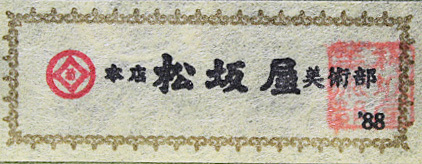 本店 松坂屋 美術部
'88